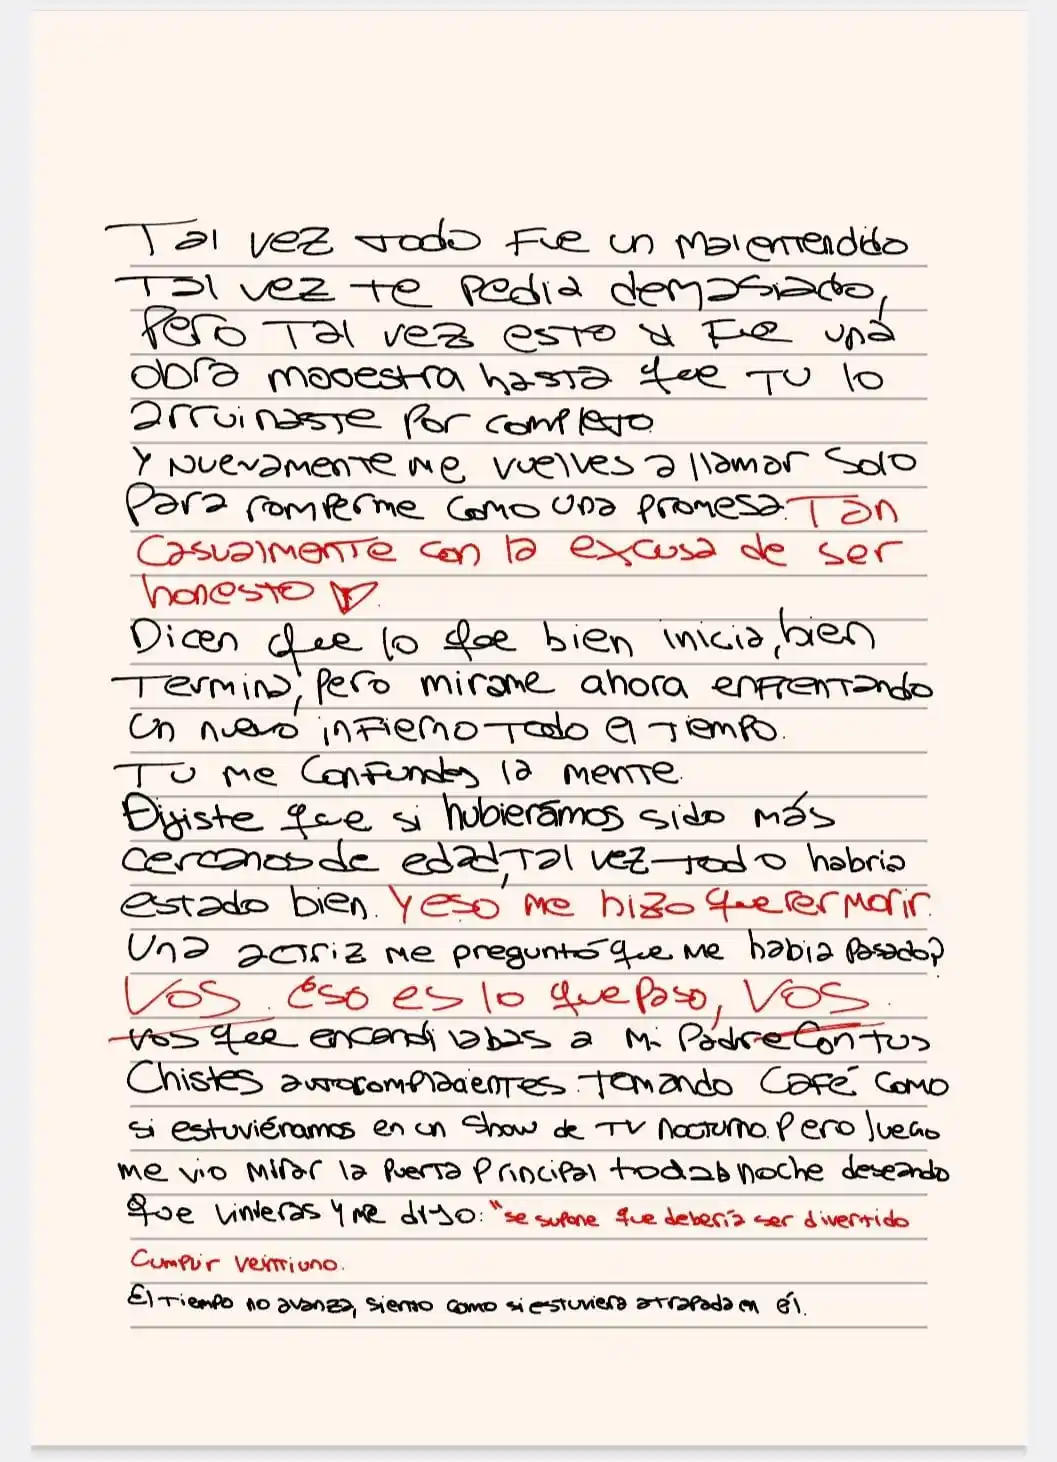 Tal vez todo fue un malentendido
Tal vez te pedia demasiado,
Pero Tal vez esto fue una
obra maoestra hasta que TU lo
arruinaste por completo
Y nuevamente me vuelves a llamar solo
Para romperme como una promesa. Tan
casualmente con la excusa de ser
honesto
Dicen que lo que bien inicia, bien
Termina, pero mirame ahora enfrentando
Un nuevo infierno todo el tiempo.
TU me confundes la mente.
Dijiste que si hubierámos sido más
cercanos de edad, Tal vez todo habria
estado bien. Y eso me hizo querer morir.
Una actriz me preguntó que me habia pasado?
VOS. éso es lo que paso, VOS.
vos que encandilabas a mi Padre con tus
Chistes autocomplacientes. Tomando Café. como
si estuviéramos en un show de TV nocturno. Pero luego
me vio mirar la puerta principal toda noche deseando
que vinieras y me dijo: "se supone que debería ser divertido
Cumplir veintiuno.
El Tiempo no avanza, siento como si estuviera atrapada en él.